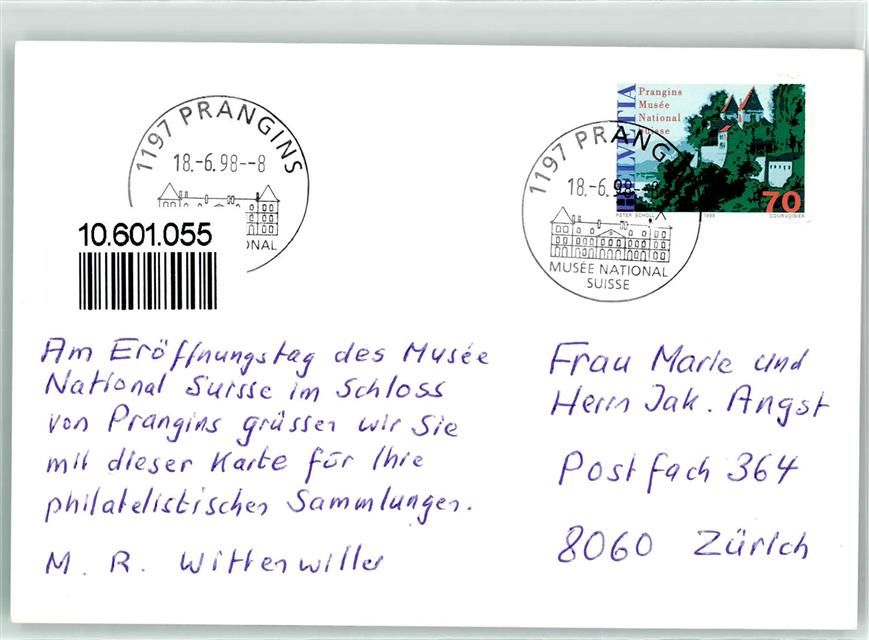 1197 PRANGINS
18.-6.98--8
ONAL
10.601.055
1197 PRANG
18.-6.98--8
MUSÉE NATIONAL
SUISSE
HELVETIA
Prangins
Musée
National
Suisse
70
PETER SCHOLL 1998 COURVOISIER
Am Eröffnungstag des Musée
National Suisse im Schloss
von Prangins grüssen wir Sie
mit dieser Karte für Ihre
philatelistischen Sammlungen.
M. R. Wittenwiller
Frau Marie und
Herrn Jak. Angst
Postfach 364
8060 Zürich